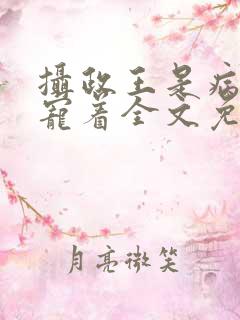 攝政王是病
寵着全文免
月亮微笑